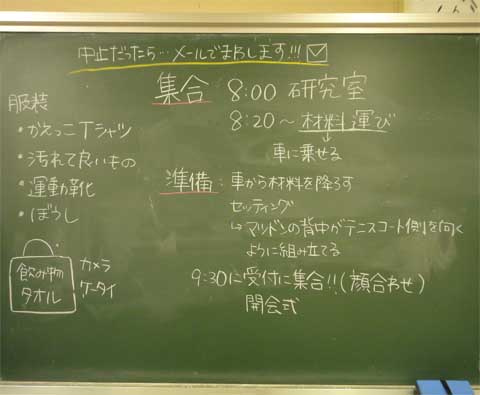 中止だったら…メールでまわします!!!
集合 8:00 研究室
8:20〜材料運び
↓
車に乗せる
服装
・かえっこTシャツ
・汚れて良いもの
・運動靴
・ぼうし
飲み物
タオル
カメラ
ケータイ
準備:車から材料を降ろす
セッティング
↳マツドンの背中がテニスコート側を向く
ように組み立てる
9:30に受付に集合!!(顔合わせ)
開会式